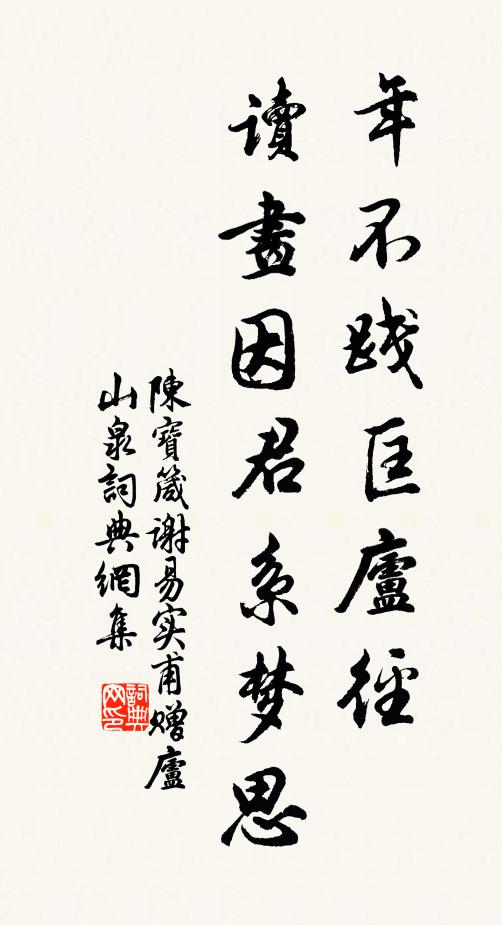 年不践匡廬徑
讀畫因君系梦思
陳寶箴谢易实甫赠廬
山泉詞典網集
詞典
网印